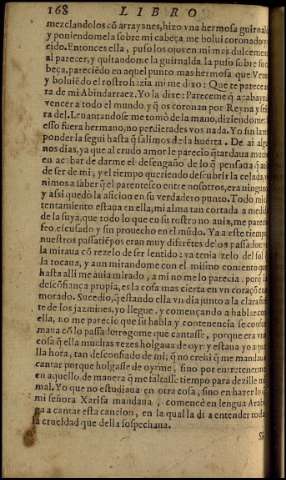 168 LIBRO
mezclandolos cõ arrayanes, hizo vna hermosa guirnalda
y poniendomela sobre mi cabeça, me bolui coronado y
cido. Entonces ella, puso los ojos en mi mas dulcemente
al parecer, y quitandome la guirnalda la puso sobre su ca
beça, pareciêdo en aquel punto mas hermosa que Venus
y boluiẽdo el rostro hazia mi me dixo: Que te parece
ra de mi Abindarraez. Yo la dixe: Pareceme q̃ acabays
vencer a todo el mundo, y q̃ os coronan por Reyna y se
ra del. Leuantandose me tomò de la mano, diziendome:
esso fuera hermano, no perdierades vos nada. Yo sin la
ponder la segui hasta q̃ salimos de la huerta. De ai algu
nos dias, ya que al crudo amor le parecio q̃ tardaua mucho
en acabar de darme el desengaño de lo q̃ pensaua
de ser de mi, y el tiempo queriendo descubrir la celada, ve
nimos a saber q̃ el parentesco entre nosotros, era ninguno
y assi quedò la aficion en su verdadero punto. Todo mi cõ
tentamiento estaua en ella, mi alma tan cortada a medida
de la suya, que todo lo que en su rostro no auia, me parecia
feo, escusado y sin prouecho en el mũdo. Ya a este tiempo
nuestros passatiẽpos eran muy diferẽtes de los passados: ya
la miraua cõ rezelo de ser sentido: ya tenia zelo del sol que
la tocaua, y aun mirandome con el mismo contento que
hasta alli me auia mirado, a mi no me lo parecia, porq̃ la
descõfiança propia, es la cosa mas cierta en vn coraçõ ena
morado. Sucedio, q̃ estando ella vn dia junto a la clara fuẽ
te de los jazmines, yo llegue, y començando a hablar con
ella, no me parecio que su habla y contenencia se confor
maua cõ lo passado: rogome que cantasse, porque era vna
cosa q̃ ella muchas vezes holgaua de oyr y estaua yo aque
lla hora, tan desconfiado de mi, q̃ no crei q̃ me mandaua
cantar porque holgasse de oyrme, sino por entretenerme
en aquello de manera q̃ me faltasse tiempo para dezille mi
mal. Yo que no estudiaua en otra cosa, sino en hazer lo q̃
mi señora Xarifa mandaua, comencè en lengua Arabi
ga a cantar esta cancion, en la qual la di a entender toda
la crueldad que della sospechaua.